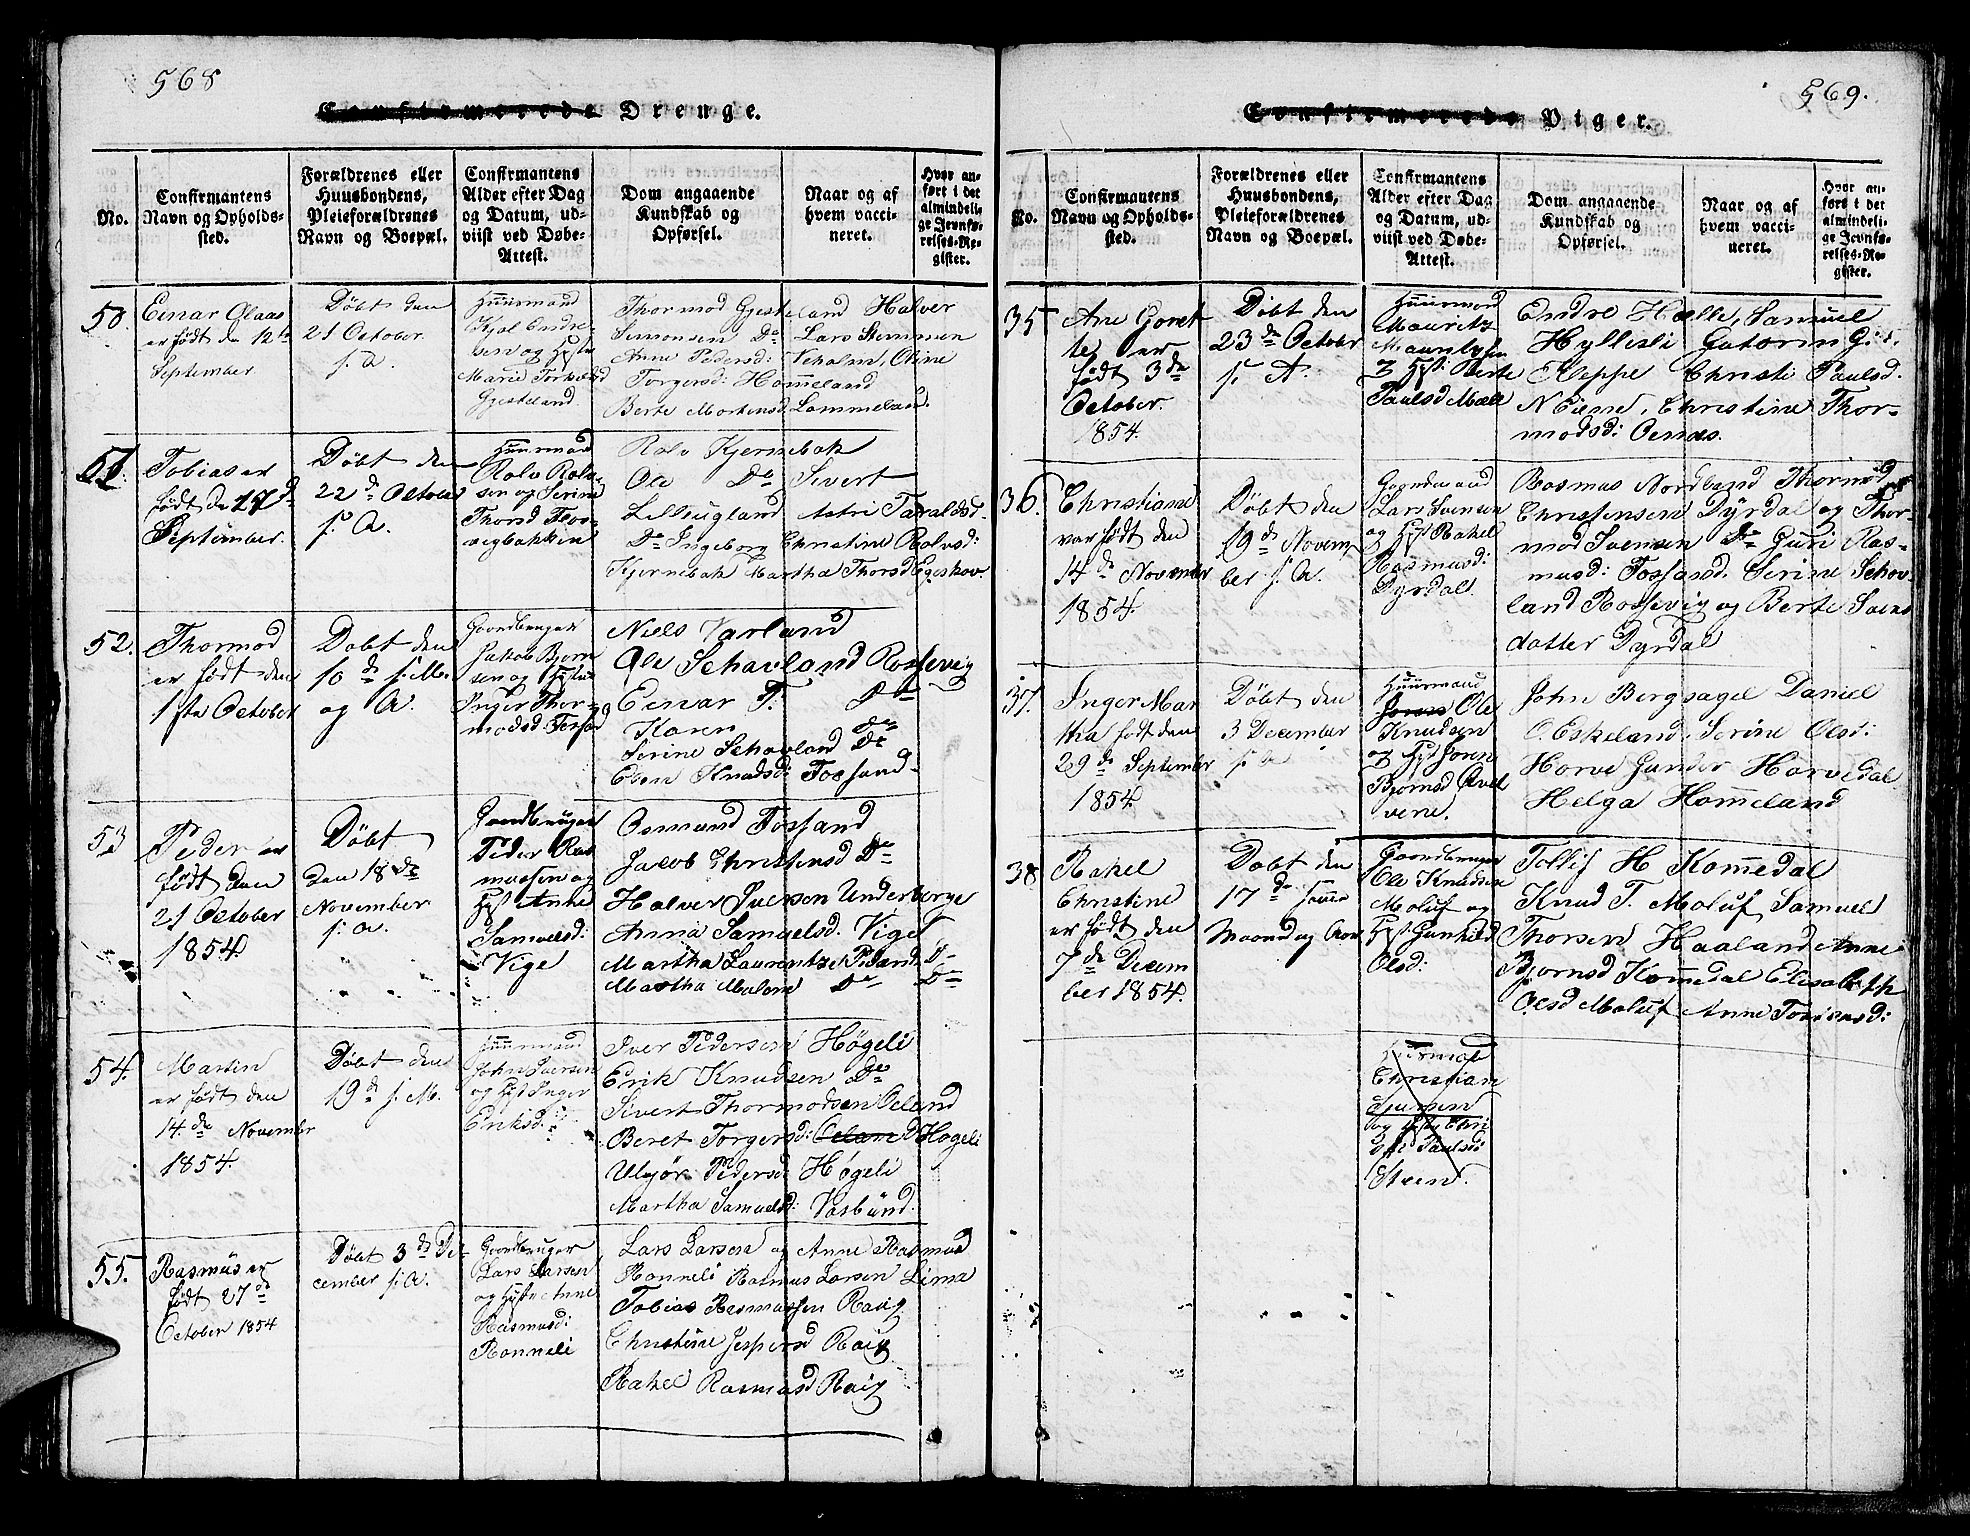 568
Confirmerede Drenge.
No.
Confirmantens
Navn og Opholds-
sted.
Forældrenes eller
Huusbondens,
Pleieforældrenes
Navn og Boepæl.
Confirmantens
Alder efter Dag
og Datum, ud-
viist ved Døbe-
Attest.
Dom angaaende
Kundskab og
Opførsel.
Naar og af
hvem vacci-
neret.
Hvor an-
ført i det
almindeli-
ge Jevnfø-
relses-Re-
gister.
50.
Einar Olaas
er født den 12te
September
Døbt den
21 October
s. A.
Huusmand
Kjel Endre-
sen og Hustru
Marie Torkelsd
Gjesteland
Thormod Gjesteland Halver
Simonsen Do Lars Stemmen
Anne Pedersd: Veholm, Oline
Torgersd: Hommeland
Berte Mortensd Lommeland.
51.
Tobias er
født de 17d
September.
Døbt den
22 de October
s. A.
Huusmand
Rolv Rolv-
sen og Serine
Thorsd Fos-
vigbakken
Rolv Kjernebak
Ole Do Sivert
Lilleugland Astri Taraldsd.
Do Ingeborg Christine Rolvsd:
Kjernebak Martha Thorsd Egeskov.
52.
Thormod
er født den
1ste October
Døbt den
10 de s. M.
og A.
Gaardbruger
Jakob Bjorn
sen og Hustru
Inger Thor-
modsd: Fossan
Niels Varland
Ole Schavland Rossevig
Einar T. Do
Karen Do
Serine Schavland Do
Elen Knudsd: Fossand
53
Peder er
født den
21 October
1854.
Døbt
den 18 de
November
s. A.
Gaardbruger
Peder Ras
mussen og
Hust Anne
Samuelsd:
Vige
Osmund Fossand
Jacob Christensd Do
Halver Iversen Underberge
Anna Samuelsd. Vige
Martha Laurentse Pedersd Do
Martha Malene Do Do
54.
Martin
er født den
14. de November
1854.
Døbt den
19 de s. M.
Huusmand
John Iversen
og Hust Inger
Eriksd.
Iver Pedersen Høgeli
Erik Knudsen Do
Sivert Thormodsen Oeland
Beret Torgersd: Oeland Høgeli
Pedersd Høgeli
Martha Samuelsd: Vasbund.
55.
Rasmus er
født 27 de
October 1854
Døbt 3 de De-
cember s: A.
Gaardbruger
Lars Larsen
og Hustru Anne
Rasmusd:
Ronneli
Lars Larsen og Anne Rasmusd
Ronneli Rasmus Larsen Lima
Tobias Rasmussen Ravig
Christine Jespersd Ravig
Rakel Rasmusd Ravig
569.
Confirmerede Piger.
No.
Confirmantens
Navn og Opholds-
sted.
Forældrenes eller
Huusbondens,
Pleieforældrenes
Navn og Boepæl.
Confirmantens
Alder efter Dag
og Datum, ud-
viist ved Døbe-
Attest.
Dom angaaende
Kundskab og
Opførsel.
Naar og af
hvem vacci-
neret.
Hvor an-
ført i det
almindeli-
ge Jevnfø-
relses-Re-
gister.
35
Ane Goret
te er
født 3 de
October.
1854.
Døbt den
23 de October
s. A.
Huusmand
Mauritz
Mauritzsen
og Hust: Berte
Paulsd Mæle
Endre Hælle, Samuel
Hyllesli Gatorin
Kleppe Christi Paulsd.
Christine Thor-
modsd: Oenæs.
36.
Christiane
var født den
14 de November
1854.
Døbt den
19 de Novem
ber s. A.
Gaardmand
Lars Svensen
og Hust Rakel
Rasmusd:
Dyrdal.
Rasmus Nordland Thormod
Christensen Dyrdal og Thor-
mod Svensen Do Guri Ras-
musd: Fossand. Serine Schav-
land Rossevig og Berte Svens
datter Dyrdal
37.
Inger Mar
tha født den
29 de September
1854.
Døbt den
3 December
s: A
Huusmand
Ole
Knudsen
og Hust Joren
Bjornsd
John Bergsagel Daniel
O. Eskeland. Serine Olsd:
Horve Gunder Horvedal
Helga Hommeland
38
Rakel
Christine
er født den
7 de Decem
ber 1854.
Døbt den
17 de samme
Maaned og Aar
Gaardbruger
Ole Knudsen
Moluf og
Hust Gunhild
Olsd:
Tollif H Kommedal
Knud T. Moluf Samuel
Thorsen Haaland Anne
Bjornsd Kommedal Elisabeth
Olsd Moluf Anne
Huusmand
Christian
Sjursen
og Hustru Chri
Paulsd
Steen.